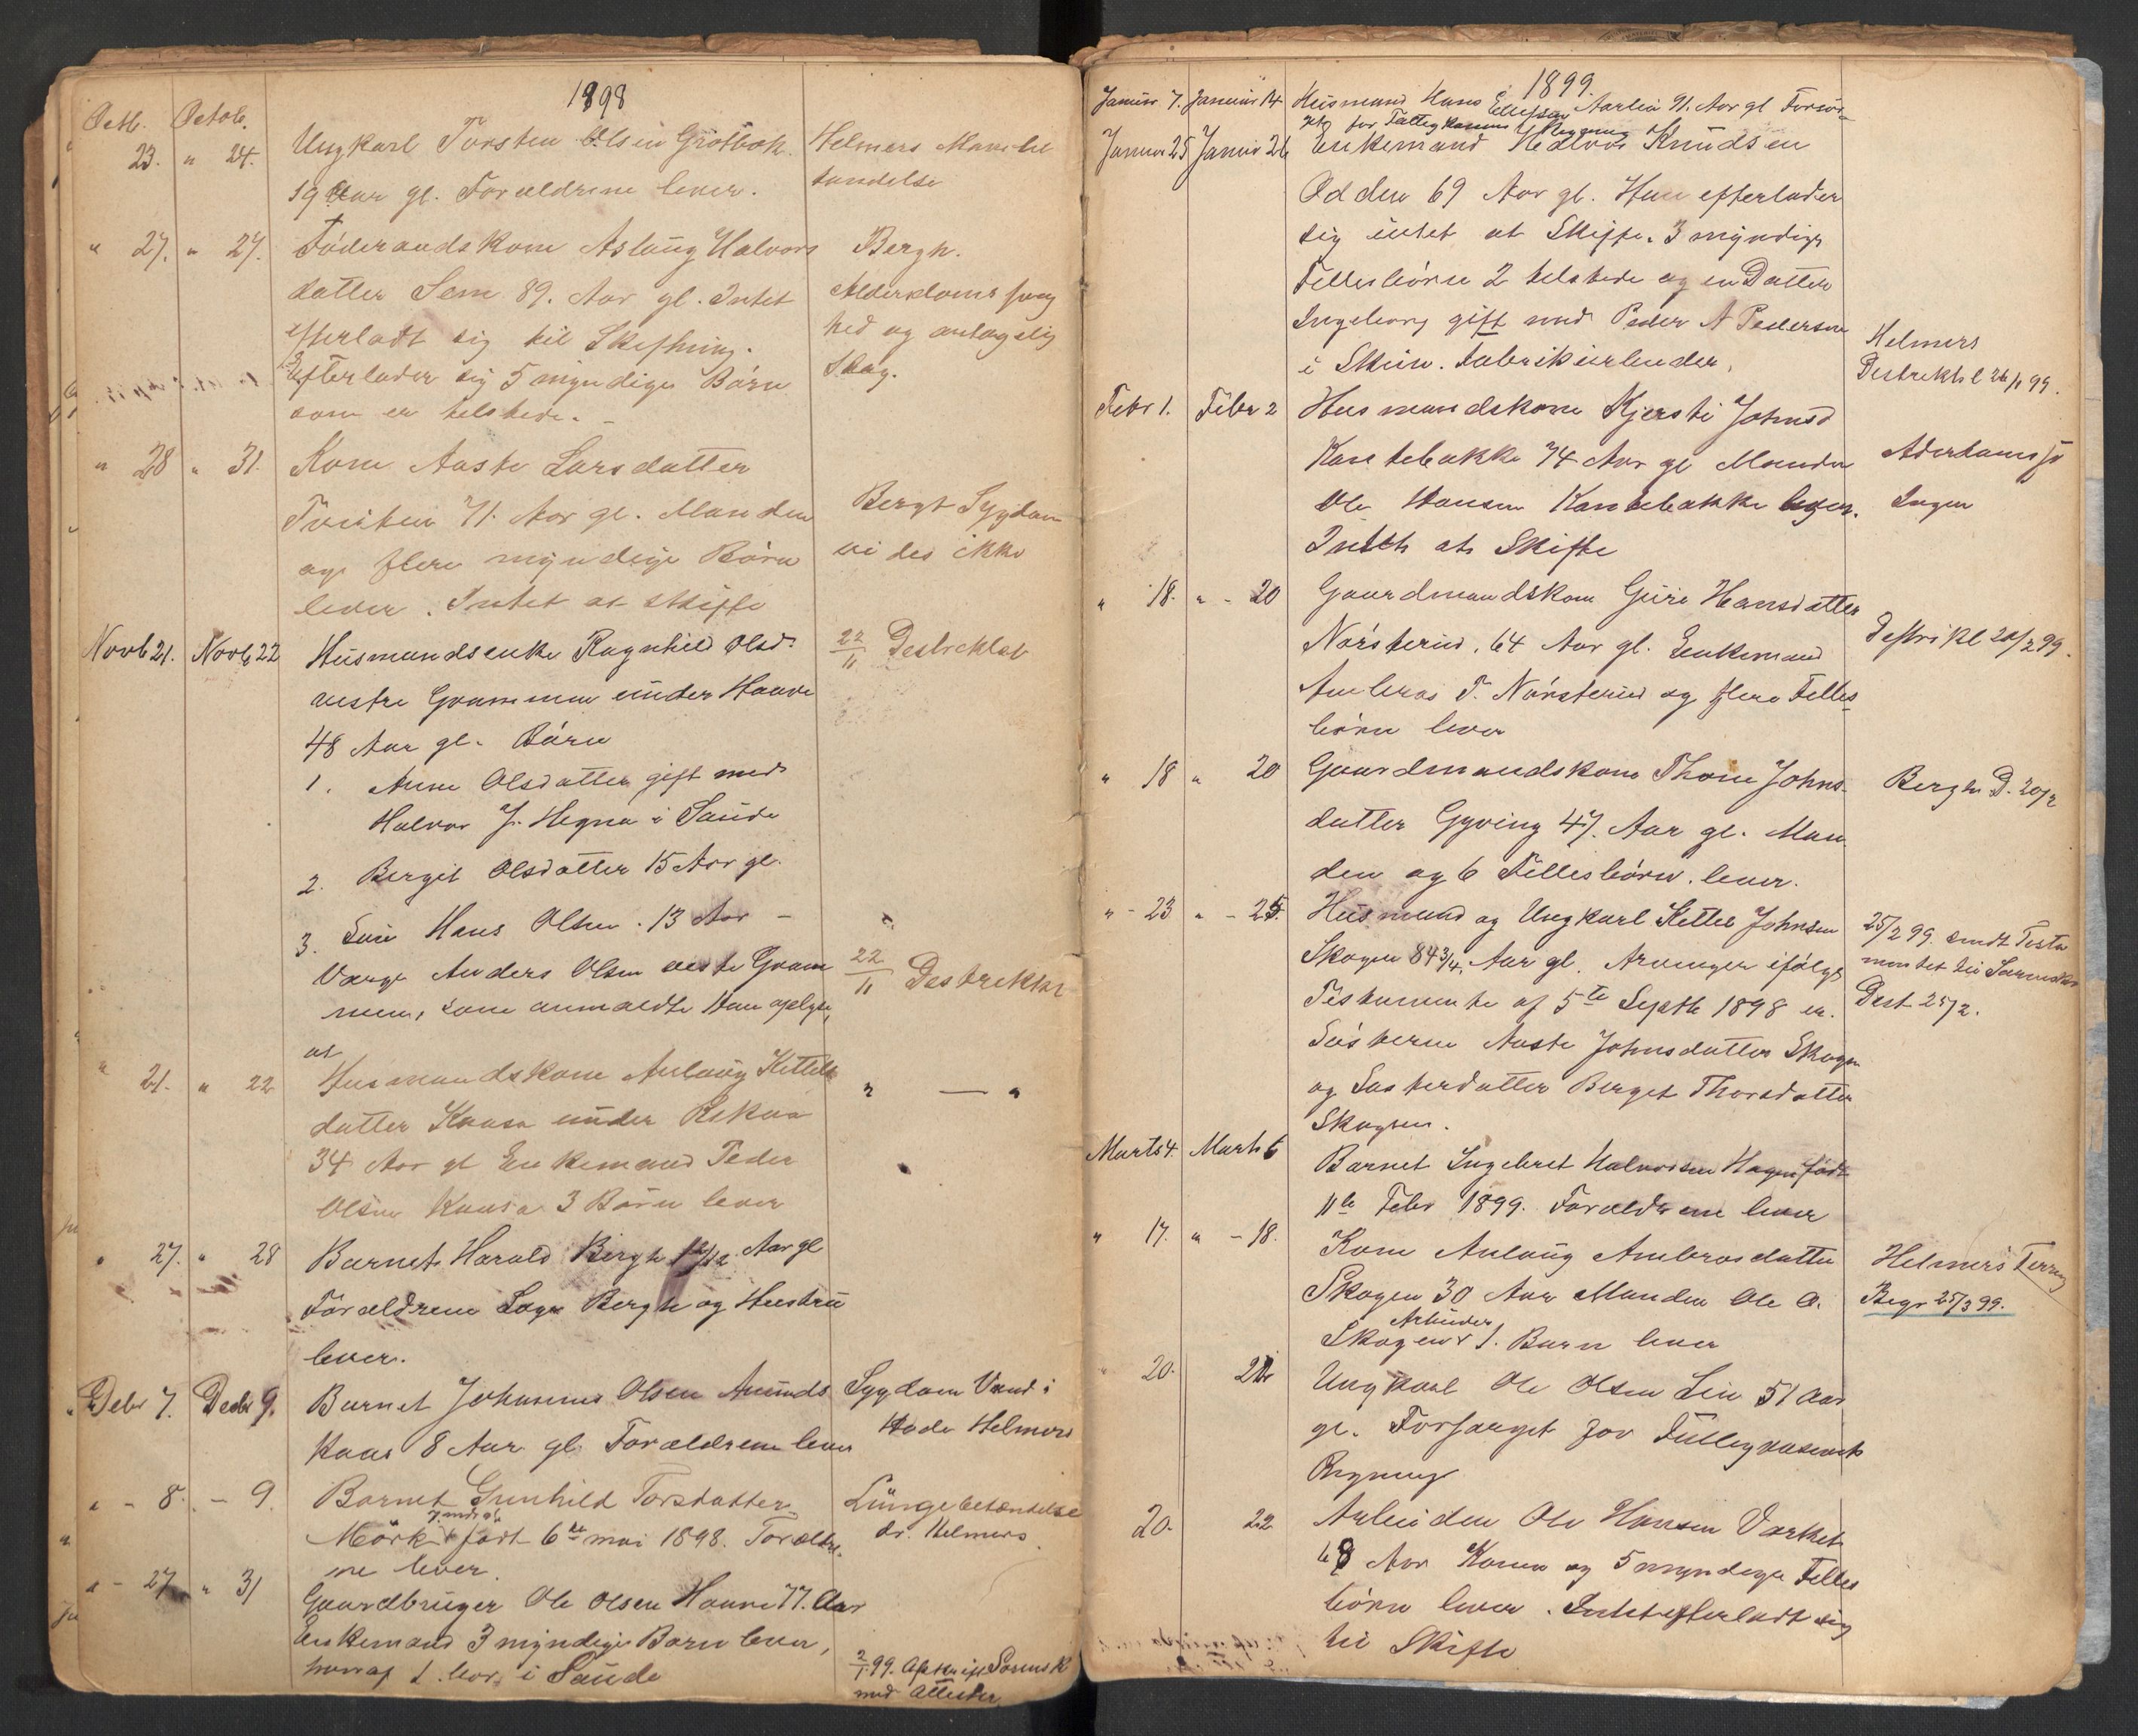 1898
Octb. Octob.
23. " 24. Ungkarl Torsten Olsen Grotbæk. Helmers
19 Aar gl. Forældrene lever.
" 27. " 27. Føderaadskone Aslaug Halvors Bergh.
datter Sem 89. Aar gl. Intet Alderdoms svag
efterladt sig til Skiftning. hed og antagelig
Efterlader sig 5 myndige Børn Slag.
som er tilstede.
" 28 " 31. Kone Aaste Larsdatter
71. Aar gl. Manden Bergh Sygdom
og flere myndige Børn vides ikke
lever. Intet at skifte
Novb 21. Novb 22 Husmandsenke Ragnhild Olsd. 22/11
vestre Grammen under Haave
48 Aar gl. Børn
1. Anne Olsdatter gift med
Halvor J. Hegna i Saude
2. Bergit Olsdatter 15 Aar gl.
3. Søn Hans Olsen. 13 Aar -
Værge Anders Olsen vestre Gram 22/11
men, som anmeldte Han oplyste,
at
" 21. " 22 Husmandskone Anlaug Kittels " — "
datter Kaasa under
34 Aar gl Enkemand Peder
Olsen Kaasa 3 Børn lever
" 27. " 28 Barnet Harald Bergh Aar gl
Forældrene Bergh og Hustru
lever.
Debr 7. Decbr 9. Barnet Johannes Olsen Amunds Sygdom Vand i
kaas 8 Aar gl. Forældrene lever Hode Helmers
" - 8. - 9. Barnet Gunhild Torsdatter Lungebetændelse
7 mdr gl.
Mørk født 6te mai 1898. Forældre- dr. Helmers.
ne lever.
" - 27 " 31 Gaardbruger Ole Olsen Haave 77. Aar
Enkemand 3 myndige Børn lever,
hvoraf 1. bor i Saude 2/1 99. Afskrift Sorensk
med Attester
1899.
Januar 7. Januar 14 Husmand Hans Ellefsen Aarlia 91. Aar gl Forsør-
get for Fattigkassens Regning
Januar 25 Januar 26 Enkemand Halvor Knudsen
Odden 69 Aar gl. Han efterlader
sig intet at Skifte. 3 myndige
Fellesbørn 2 tilstede og en Datter
Ingeborg gift med Peder A Pedersen Helmers
i Skien. Fabrikarbeider. 26/1 99.
Febr 1. Febr 2 Husmandskone Kjersti Johnsd
Kastebakke 74 Aar gl Manden
Ole Hansen Kastebakke lever. Ingen
Intet at Skifte
" 18. " - 20 Gaardmandskone Guro Hansdatter
Nørsterud. 64 Aar gl. Enkemand 20/2 99.
Ambros T. Nørsterud og flere Felles-
børn lever
" 18 " 20 Gaardmandskone Thone Johns- Bergh D. 20/2
datter Gyving 47. Aar gl. Man-
den og 6 Fellesbørn. lever.
" - 23 " - 25. Husmand og Ungkarl Kittel Johnsen 25/2 99. sendt Testa
Skogen 84 3/4. Aar gl. Arvinger ifølge mentet til Sorensk
Testamente af 5te Septb 1898 er. 25/2.
Søsteren Aaste Johnsdatter Skogen
og Søsterdatter Berget Thorsdatter
Skogen.
Marts 4. Marts 6 Barnet Ingebret Halvorsen Hagen født
11te Febr 1899. Forældrene lever
" 17. " - 18. Kone Anlaug Ambrosdatter Helmers
Skogen 30 Aar Manden Ole O. Begr 25/3 99.
Arbeider
Skogen 1. Barn lever
" 20. 21 Ungkarl Ole Olsen Lie 51 Aar
gl. Forsørget for Fattigvæsenets
Regning
20. 22 Arbeider Ole Hansen Værket
68 Aar Konen og 5 myndige Felles
børn lever. Intet efterladt sig
til Skifte